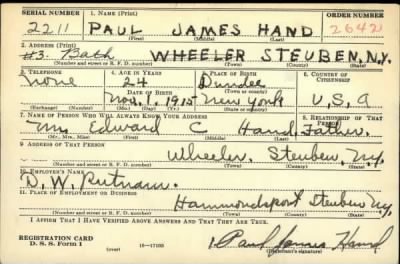 SERIAL NUMBER 1. NAME (Print) ORDER NUMBER
2211 PAUL JAMES HAND 2642
(First) (Middle) (Last)
2. ADDRESS (Print)
#3 Bath WHEELER STEUBEN, N.Y.
(Number and street or R. F. D. number) (Town) (County) (State)
3. TELEPHONE 4. AGE IN YEARS 5. PLACE OF BIRTH 6. COUNTRY OF CITIZENSHIP
none 24 Dundee
DATE OF BIRTH (Town or county)
Nov. 9, 1915 New York U.S.A
(Exchange) (Number) (Mo.) (Day) (Yr.) (State or country)
7. NAME OF PERSON WHO WILL ALWAYS KNOW YOUR ADDRESS 8. RELATIONSHIP OF THAT PERSON
Mr. Edward C Hand, Father.
(Mr., Mrs., Miss) (First) (Middle) (Last)
9. ADDRESS OF THAT PERSON
Wheeler. Steuben, N.Y.
(Number and street or R. F. D. number) (Town) (County) (State)
10. EMPLOYER'S NAME
D. W. Putnam.
11. PLACE OF EMPLOYMENT OR BUSINESS
Hammondsport Steuben N.Y.
(Number and street or R. F. D. number) (Town) (County) (State)
I AFFIRM THAT I HAVE VERIFIED ABOVE ANSWERS AND THAT THEY ARE TRUE.
REGISTRATION CARD
D. S. S. Form 1 (over) 16—17105 Paul James Hand
(Registrant's signature)